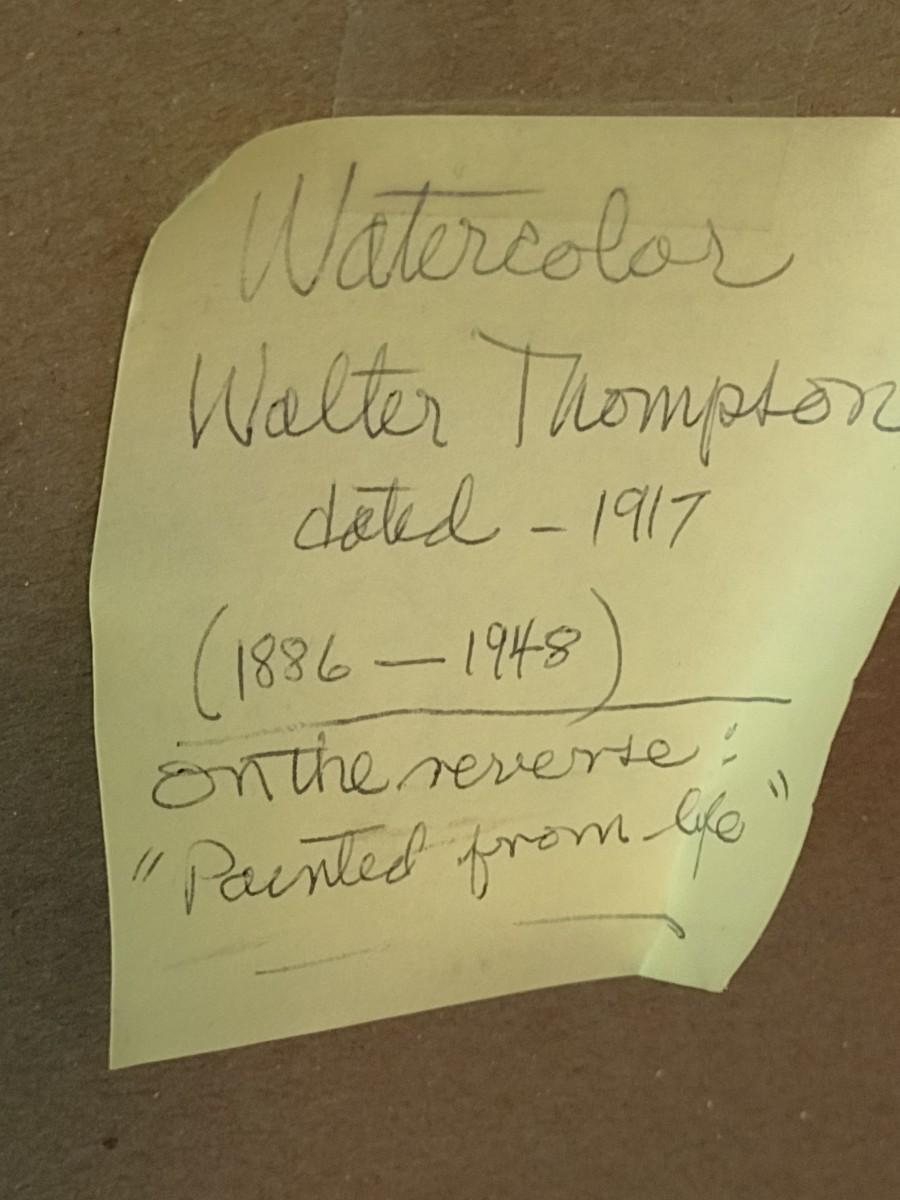 Watercolor
Walter Thompson
dated - 1917
(1886 — 1948)
on the reverse:
"Painted from life"